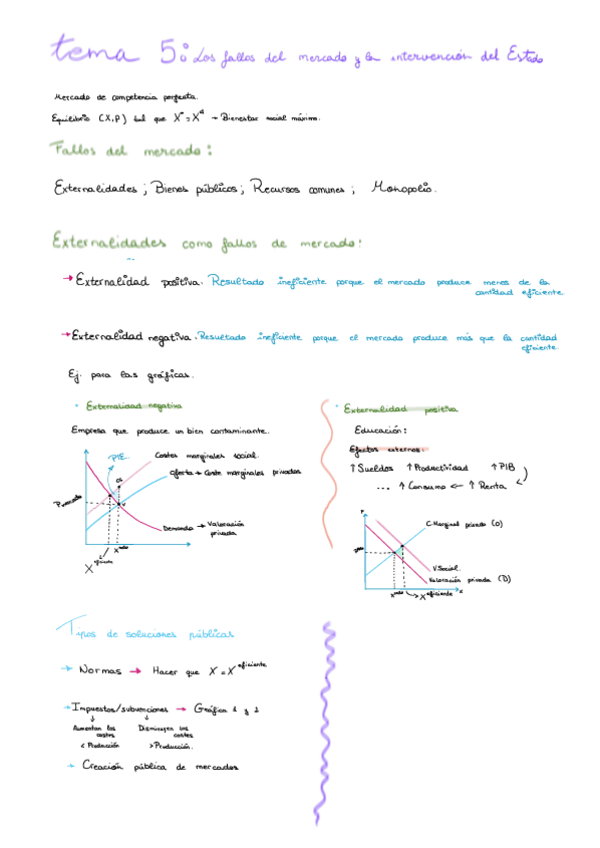 tema 5: Los fallos del mercado y la intervención del Estado
Mercado de competencia perfecta.
Equilibrio (X,P) tal que X = X → Bienestar social máximo.
Fallos del mercado:
Externalidades; Bienes públicos; Recursos comunes; Monopolio.
Externalidades como fallos de mercado:
→ Externalidad positiva. Resultado ineficiente porque el mercado produce menos de la
cantidad eficiente.
→ Externalidad negativa. Resultado ineficiente porque el mercado produce más que la cantidad
eficiente.
Ej. para las gráficas.
• Externalidad negativa
Empresa que produce un bien contaminante.
Costes marginales social.
oferta → Coste marginales privados
P mercado
Demanda → Valoración
privada
X eficiente
• Externalidad positiva
Educación:
Efectos externos:
↑ Sueldos ↑ Productividad ↑ PIB
... ↑ Consumo ← ↑ Renta
P
C. Marginal privado (O)
V. Social.
Valoración privada (D)
→ X eficiente
Tipos de soluciones públicas
→ Normas → Hacer que X = X eficiente
→ Impuestos/subvenciones → Gráfica 1 y 2
Aumentan los costes
Disminuyen los costes
< Producción
> Producción.
→ Creación pública de mercados